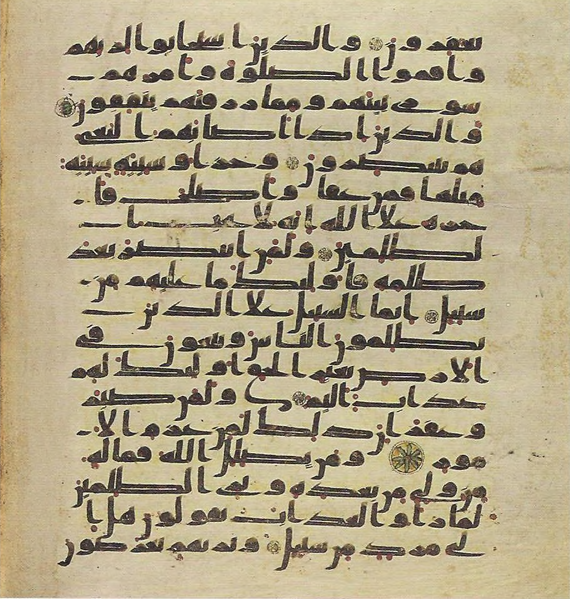 يغفرون والذين استجابوا لربهم
واقموا الصلوة وامرهم
شورى بينهم ومما رزقنهم ينفقون
والذين اذا اصابهم البغى
هم ينتصرون وجزاو سيئة سيئة
مثلها فمن عفا واصلح فا
جره علا الله انه لا يحب ا
لظلمين ولمن انتصر بعد
ظلمه فاولئك ما عليهم من
سبيل انما السبيل علا الذين
يظلمون الناس ويبغون فى
الارض بغير الحق اولئك لهم
عذاب اليم ولمن صبر
وغفر ان ذلك لمن عزم الا
مور ومن يضلل الله فما له
من ولى من بعده وترى الظلمين
لما راوا العذاب يقولون هل ا
لى مرد من سبيل وتريهم يعرضون